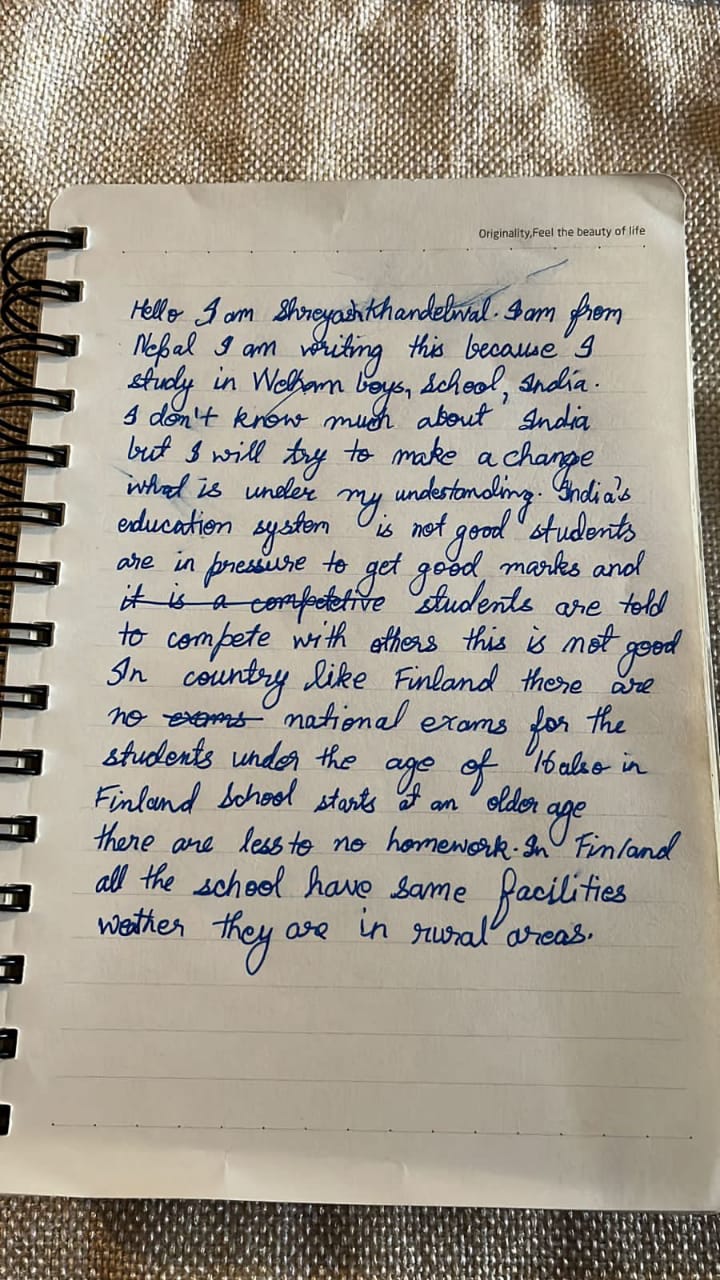 Originality,Feel the beauty of life
Hello I am Shreyash Khandelwal. I am from
Nepal I am writing this because I
study in Welham boys, School, India.
I don't know much about India
but I will try to make a change
what is under my understanding. India's
education system is not good students
are in pressure to get good marks and
it is a competetive students are told
to compete with others this is not good
In country like Finland there are
no exams national exams for the
students under the age of 16 also in
Finland School starts at an older age
there are less to no homework. In Finland
all the school have same facilities
weather they are in rural areas.